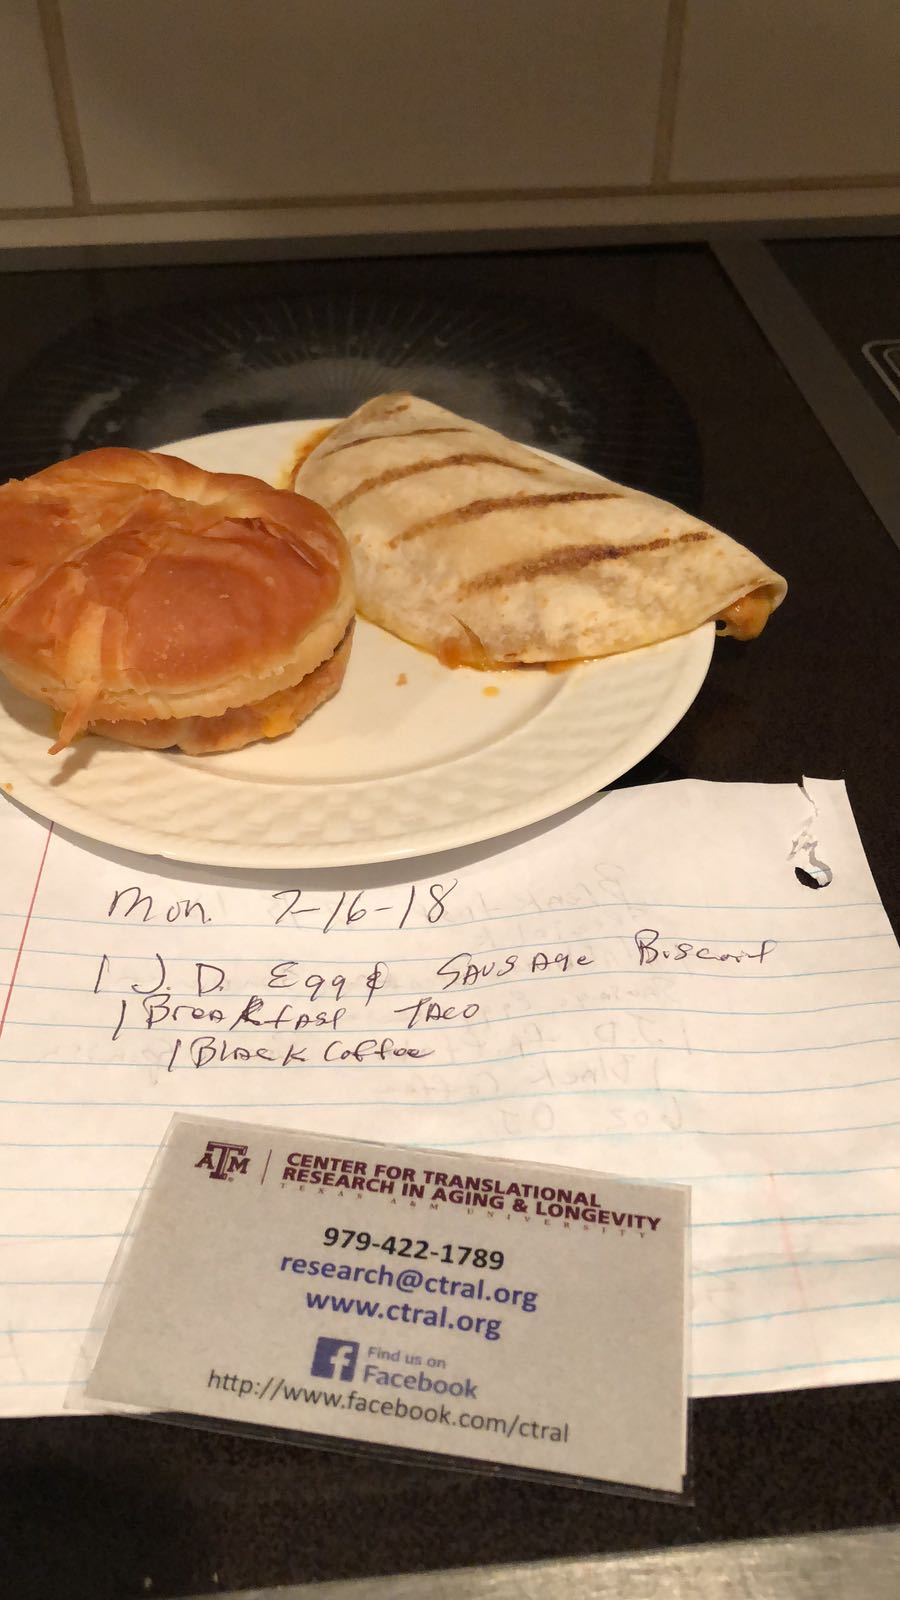 Mon. 7-16-18
1 J. D. Egg & Sausage Biscuit
1 Breakfast Taco
1 Black Coffee
ATM
CENTER FOR TRANSLATIONAL
RESEARCH IN AGING & LONGEVITY
TEXAS A&M UNIVERSITY
979-422-1789
research@ctral.org
www.ctral.org
f Find us on
Facebook
http://www.facebook.com/ctral